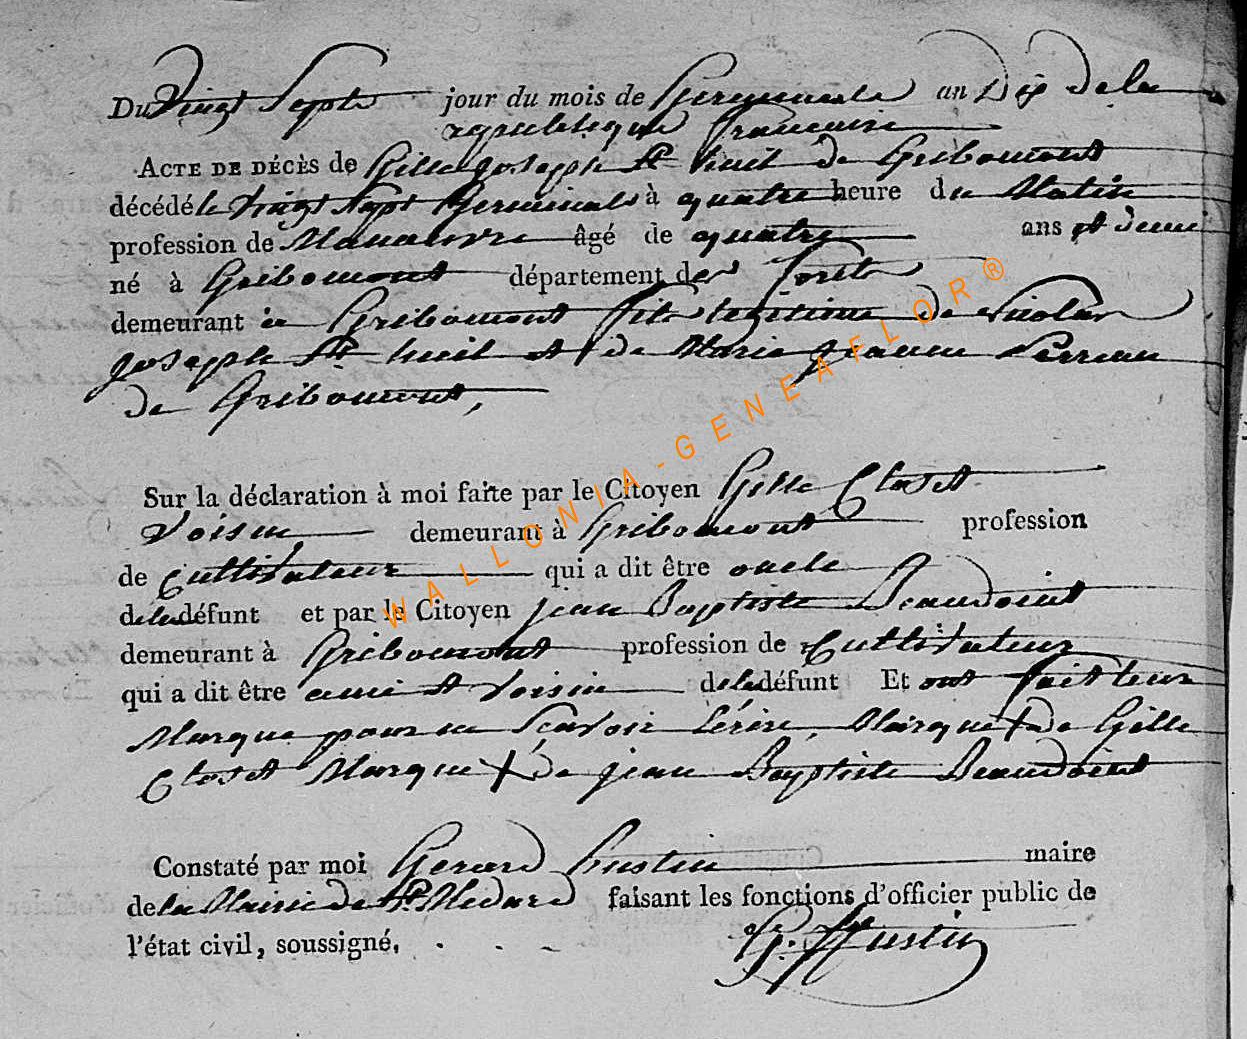 Du Vingt Sept jour du mois de Germinale an Dix de la
republique francaise
ACTE DE DÉCÈS de Gille joseph St huil de Gribomont
décédé le Vingt Sept Germinale à quatre heure du Matin
profession de Manoeuvre âgé de quatre ans et demi
né à Gribomont département des forets
demeurant à Gribomont fils legitime de Nicolas
joseph St huil et de Marie jeanne Perreau
de Gribomont,
Sur la déclaration à moi faite par le Citoyen Gille Closet
Voisin demeurant à Gribomont profession
de Cultivateur qui a dit être oncle
de le défunt et par le Citoyen jean Baptiste Beaudoint
demeurant à Gribomont profession de Cultivateur
qui a dit être ami et Voisin de le défunt Et ont fait leur
Marque pour ne Scavoir Lérire, Marque + de Gille
Closet Marque + de jean Baptiste Beaudoint
Constaté par moi Gerard hustin maire
de la Mairie de St Medard faisant les fonctions d'officier public de
l'état civil, soussigné.
G. hustin
WALLONIA-GENEAFLOR®